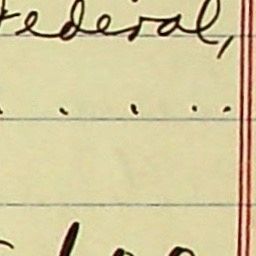 Federal,
. . . . .